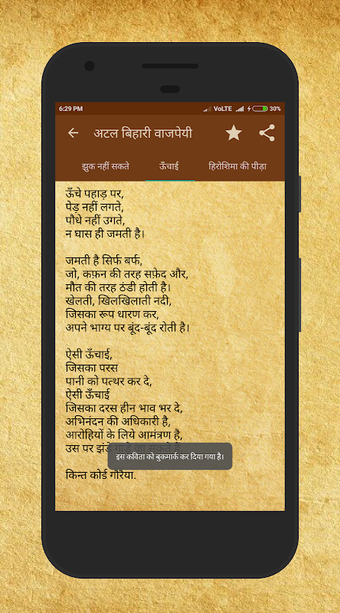 6:29 PM VoLTE 30%
अटल बिहारी वाजपेयी
झुक नहीं सकते ऊँचाई हिरोशिमा की पीड़ा
ऊँचे पहाड़ पर,
पेड़ नहीं लगते,
पौधे नहीं उगते,
न घास ही जमती है।
जमती है सिर्फ बर्फ,
जो, कफ़न की तरह सफ़ेद और,
मौत की तरह ठंडी होती है।
खेलती, खिलखिलाती नदी,
जिसका रूप धारण कर,
अपने भाग्य पर बूंद-बूंद रोती है।
ऐसी ऊँचाई,
जिसका परस
पानी को पत्थर कर दे,
ऐसी ऊँचाई
जिसका दरस हीन भाव भर दे,
अभिनंदन की अधिकारी है,
आरोहियों के लिये आमंत्रण है,
उस पर झंडे
इस कविता को बुकमार्क कर दिया गया है।
किन्तु कोई गौरैया,